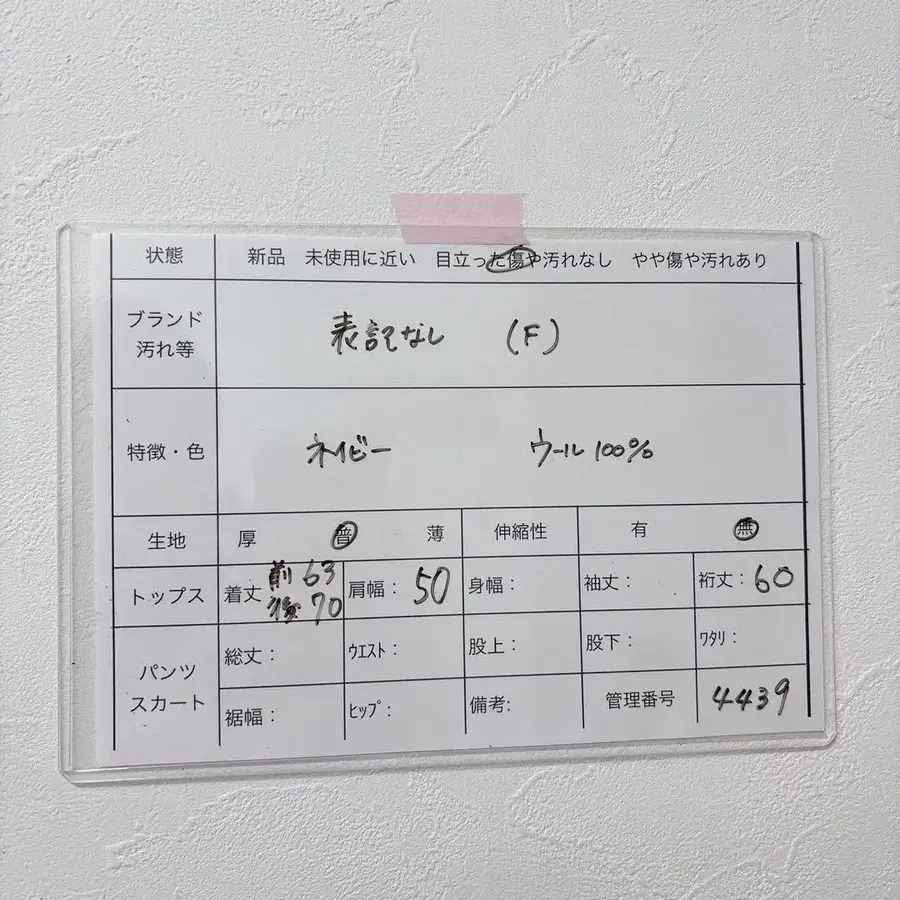 状態 新品 未使用に近い 目立った傷や汚れなし やや傷や汚れあり
ブランド 汚れ等 表記なし (F)
特徴・色 ネイビー ウール100%
生地 厚 普 薄 伸縮性 有 無
トップス 着丈 前63 後70 肩幅: 50 身幅: 袖丈: 裄丈: 60
パンツ スカート 総丈: ウエスト: 股上: 股下: ワタリ:
裾幅: ヒップ: 備考: 管理番号 4439